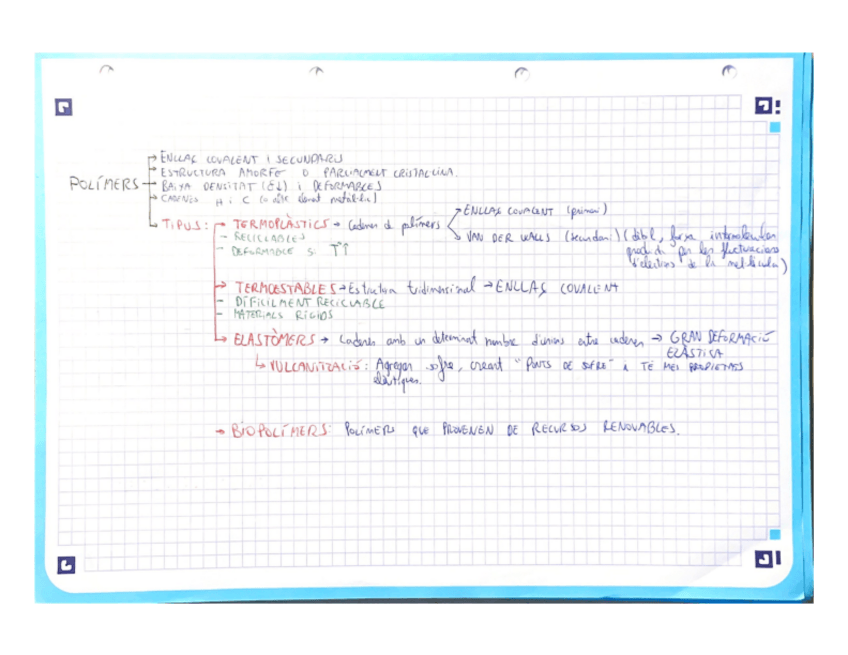 POLÍMERS
ENLLAÇ COVALENT I SECUNDARIS
ESTRUCTURA AMORFE O PARCIALMENT CRISTAL·LINA.
BAIXA DENSITAT (δ↓) I DEFORMABLES
CADENES H i C (o altre element metàl·lic)
TIPUS: → TERMOPLÀSTICS → Cadenes de polímers
→ ENLLAÇ COVALENT (primari)
→ VAN DER WALLS (secundari) (dèbil, força intermolecular
produïda per les fluctuacions
d'electrons de la mol·lècula)
- RECICLABLES
- DEFORMABLE SI T↑↑
→ TERMOESTABLES → Estructura tridimensional → ENLLAÇ COVALENT
- DIFÍCILMENT RECICLABLE
- MATERIALS RÍGIDS
→ ELASTÒMERS → Cadenes amb un determinat nombre d'unions entre cadenes → GRAN DEFORMACIÓ
ELÀSTICA
↳ VULCANITZACIÓ: Agregar sofre, creant "PONTS DE SOFRE" TÉ MÉS PROPIETATS
elàstiques.
→ BIOPOLÍMERS: POLÍMERS QUE PROVENEN DE RECURSOS RENOVABLES.